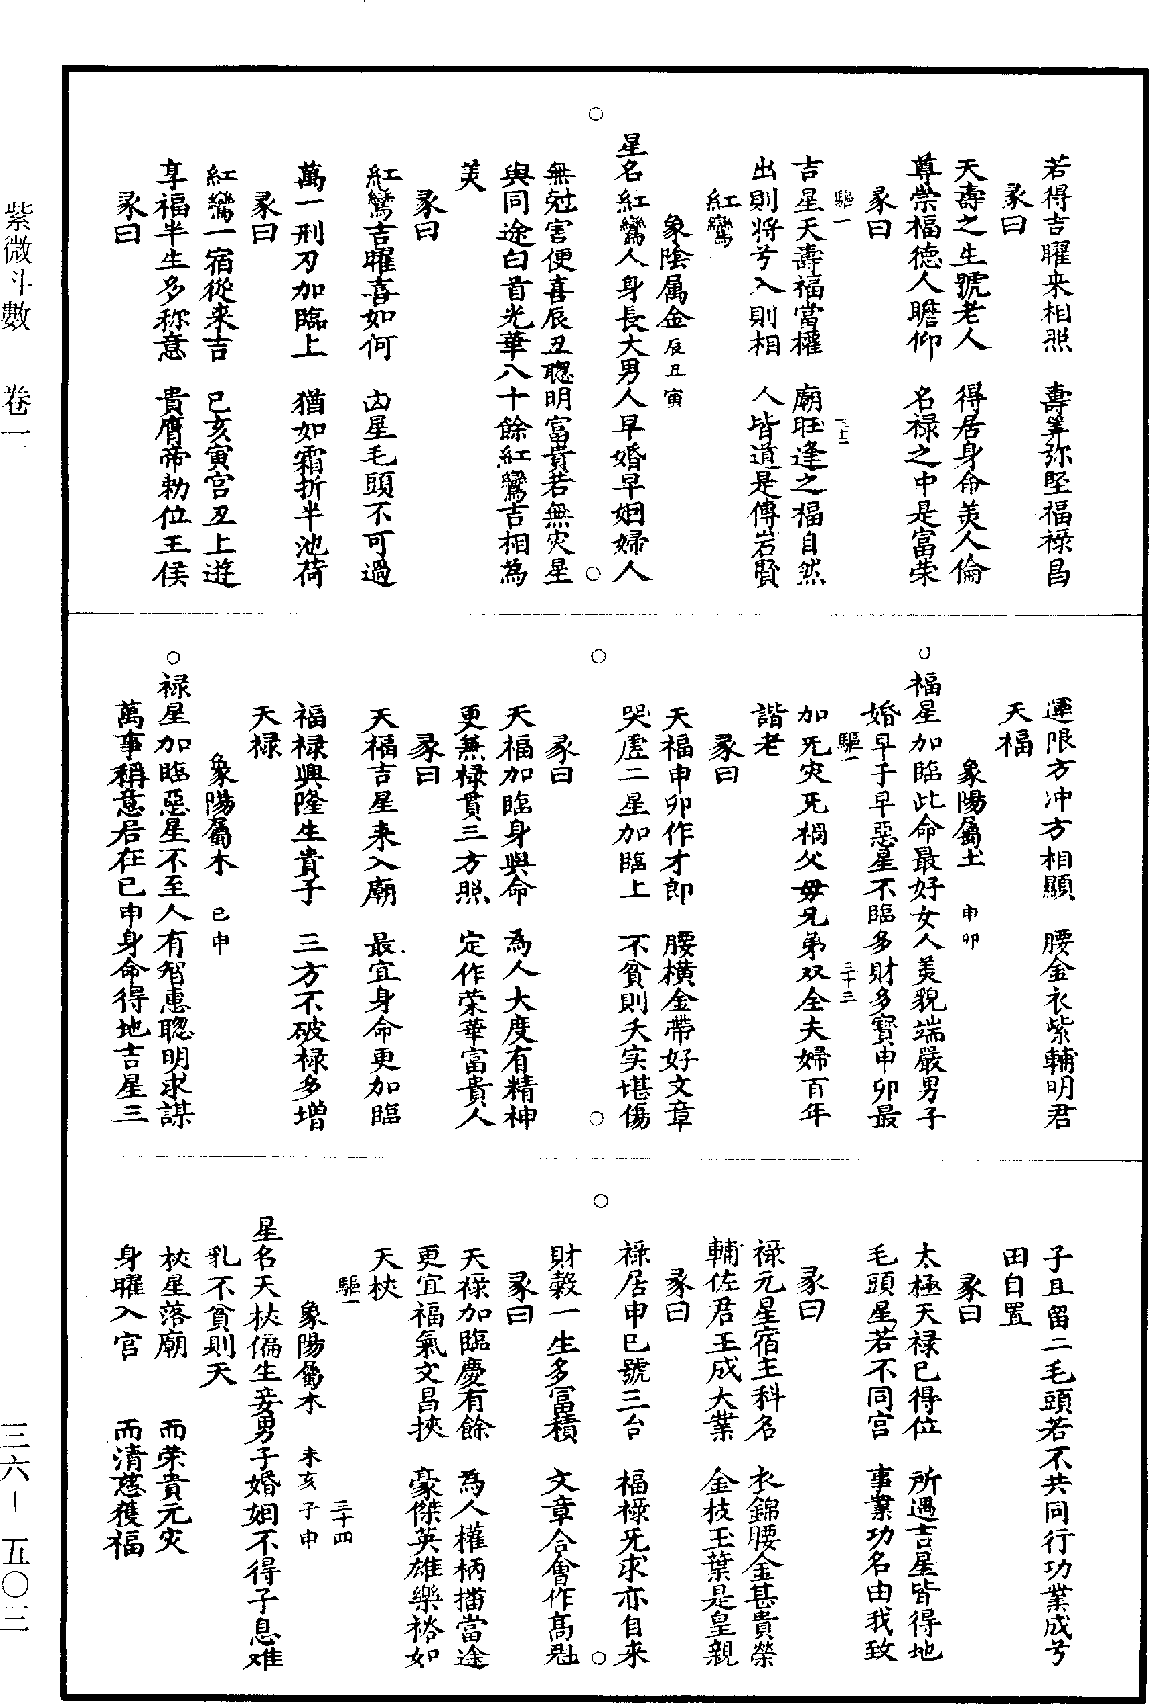 若得吉曜来相照　壽筭弥堅福祿昌
彖曰
天壽之生號老人　得居身命美人倫
尊崇福德人瞻仰　名祿之中是富荣
彖曰
驅一
吉星天壽福當權　廟旺逢之福自然
出則將兮入則相　人皆道是傅岩賢
紅鸞
象陰属金辰丑寅
○
星名紅鸞人身長大男人早婚早姻婦人
無尅害便喜辰丑聰明富貴若無灾星
與同途白首光華八十餘紅鸞吉相為
美
彖曰
紅鸞吉曜喜如何　凶星毛頭不可過
萬一刑刃加臨上　猶如霜折半池荷
彖曰
紅鸞一宿從来吉　巳亥寅宮丑上遊
享福半生多称意　貴膺帝勑位王侯
彖曰
運限方冲方相顯　腰金衣紫輔明君
天福
象陽屬土　申卯
福星加臨此命最好女人美貌端嚴男子
婚早子早惡星不臨多財多寶申卯最
驅一　三十三
加旡灾旡梱父毋兄弟双全夫婦百年
諧老
彖曰
天福申卯作才郎　腰橫金帶好文章
○
哭虛二星加臨上　不貧則夭实堪傷
彖曰
天福加臨身與命　為人大度有精神
更無祿貫三方照　定作荣華富貴人
彖曰
天福吉星来入廟　最宜身命更加臨
福祿興隆生貴子　三方不破祿多增
天祿
象陽屬木　巳申
○祿星加臨惡星不至人有智惠聰明求謀
萬事稱意居在巳申身命得地吉星三
子且留二毛頭若不共同行功業成兮
田自置
彖曰
太極天祿已得位　所遇吉星皆得地
毛頭星若不同宮　事業功名由我致
彖曰
祿元星宿主科名　衣錦腰金甚貴榮
輔佐君王成大業　金枝玉葉是皇親
彖曰
祿居申巳號三台　福祿旡求亦自来
○
財穀一生多冨積　文章合會作高魁
彖曰
天祿加臨慶有餘　為人權柄描當途
更宜福氣文昌挾　豪傑英雄樂裕如
天杖
驅一　三十四
象陽屬木　未亥子申
星名天杖偏生妾男子婚姻不得子息难
乳不貧則夭
杖星落廟　而荣貴元灾
身曜入官　而清慈獲福
紫微斗數　卷一
三六－五〇三